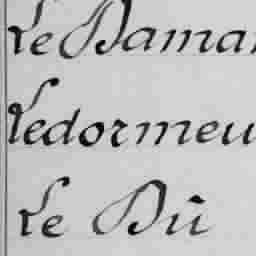 Le Dama
Ledormeu
Le Dû